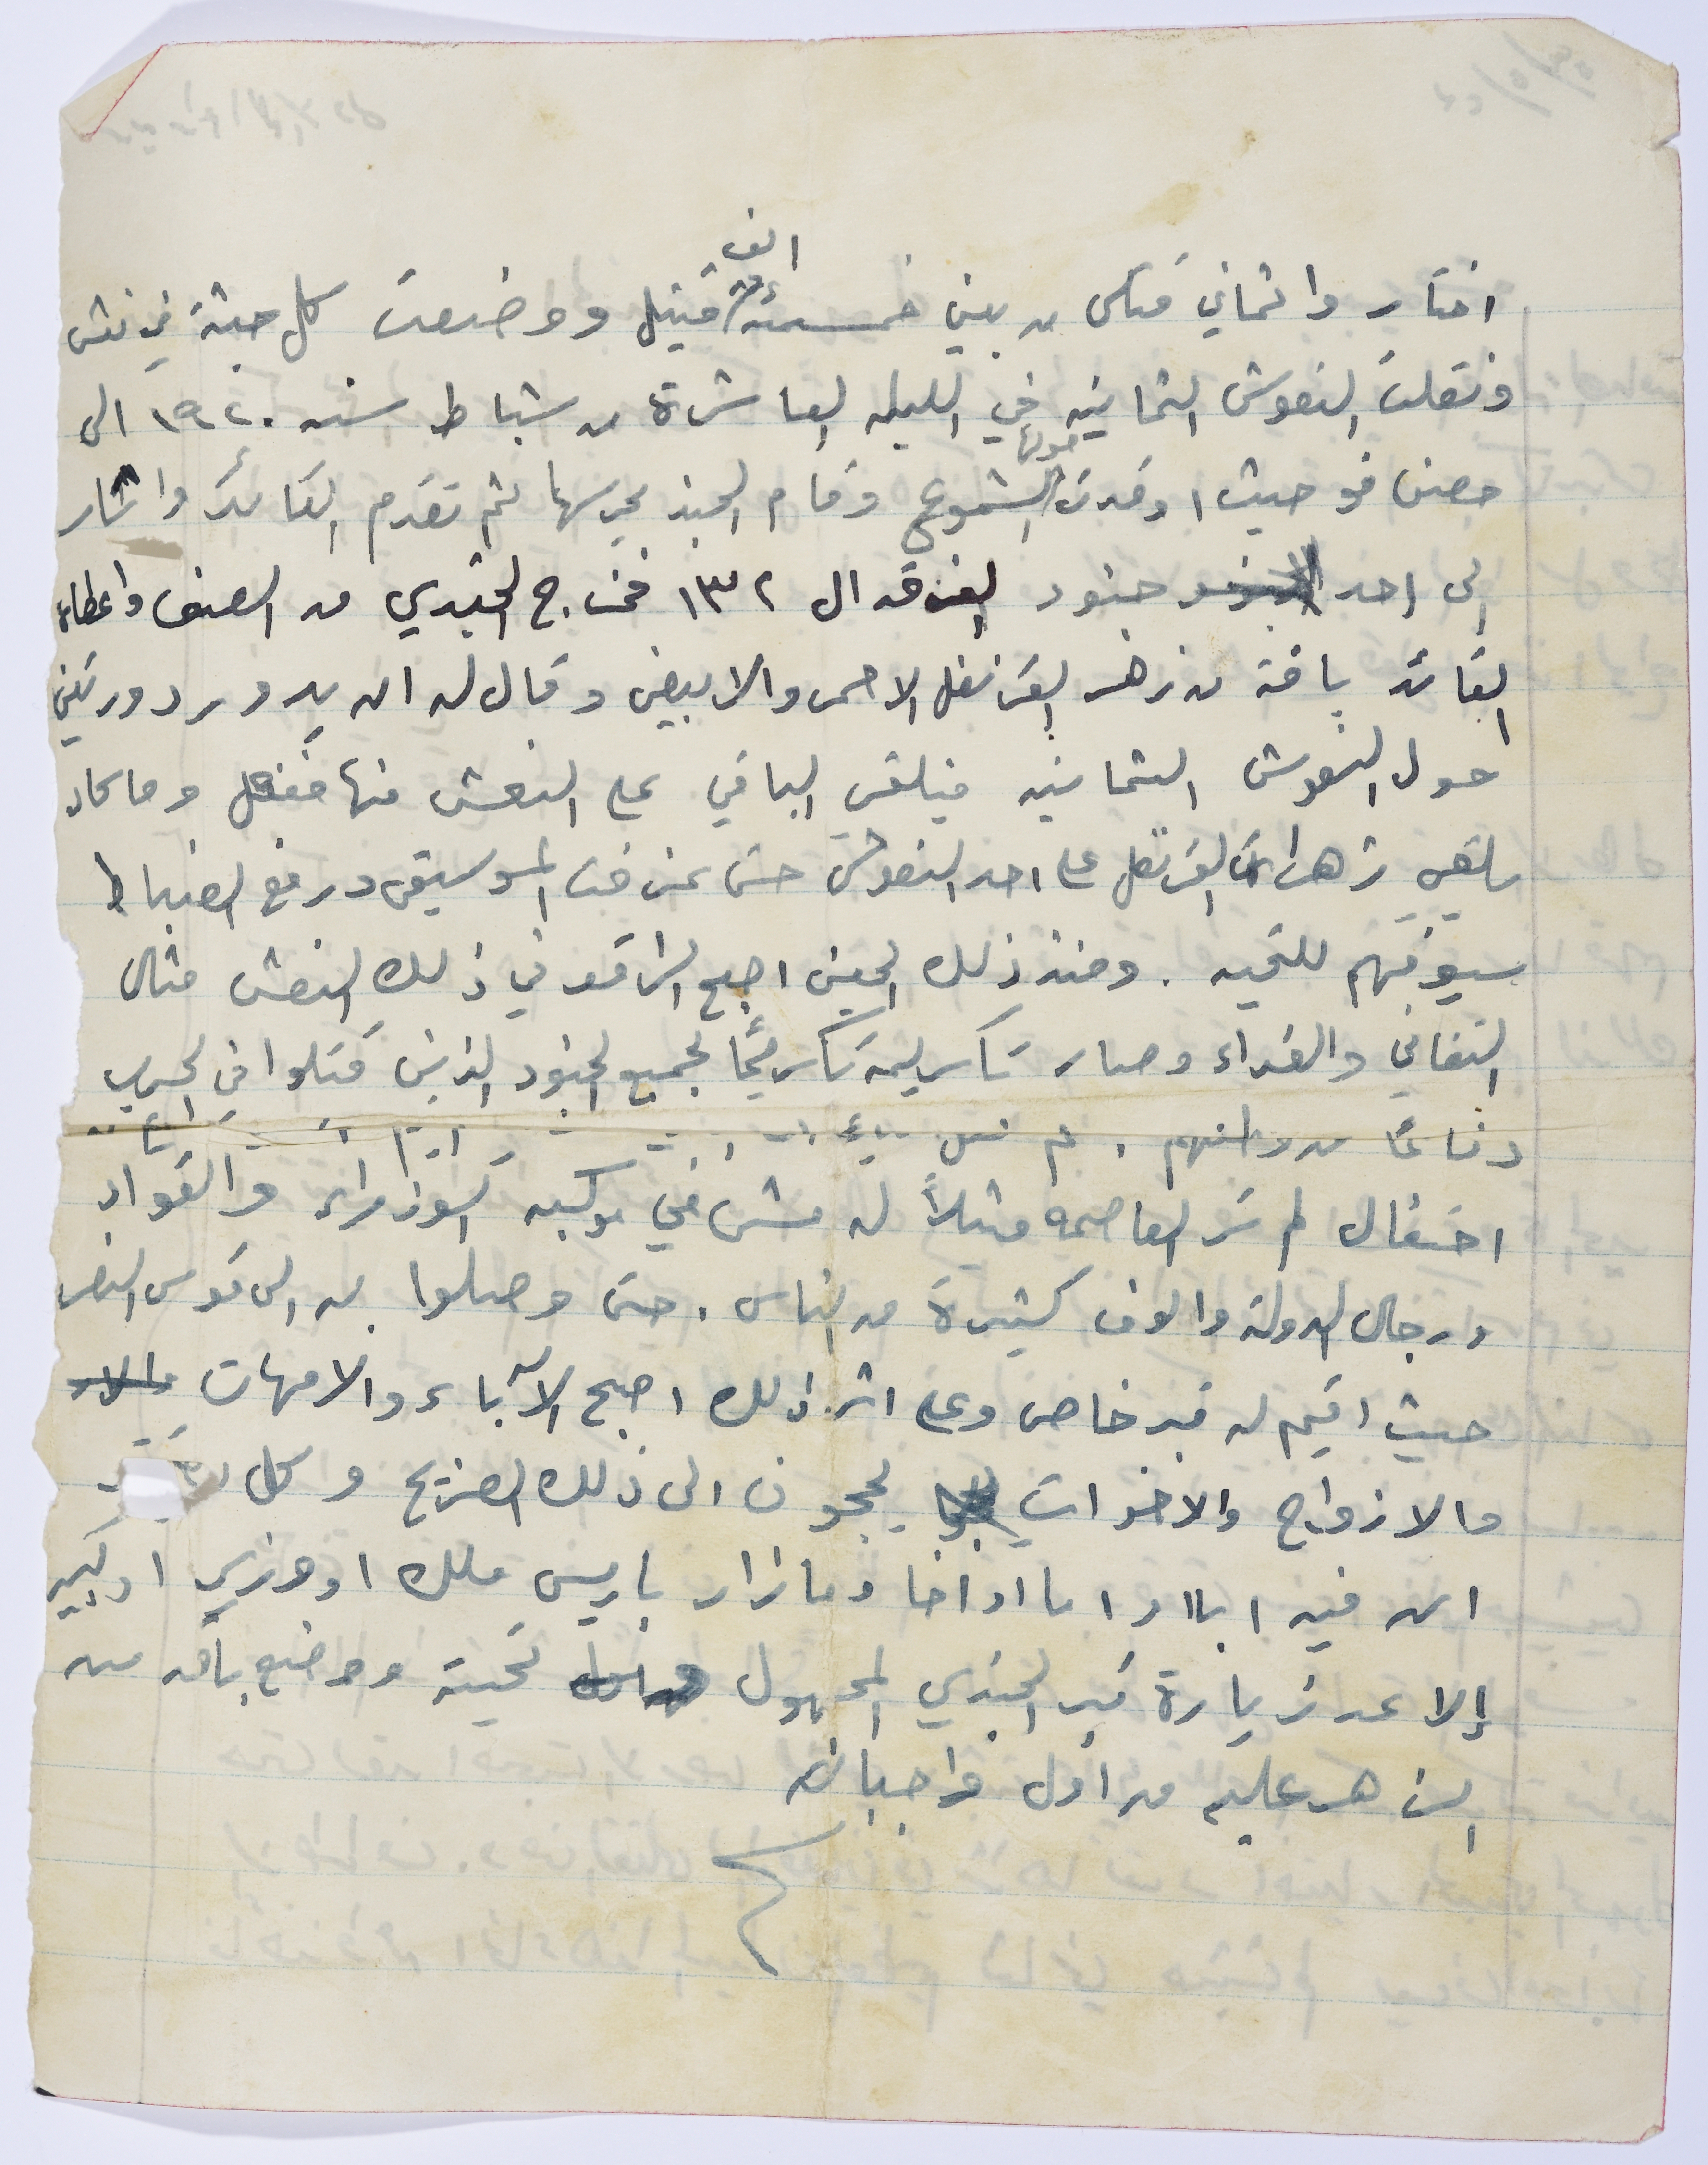 اختاروا ثماني قتلى من بين خمسمئة الف قتيل ووضعت كل جثة في نعش
ونقلت النعوش الثمانيه في الليله العاشرة من شباط سنه ١٩٢٠ الى
حصن فو حيث اوقدت حولها الشموع وقام الجند بحرسها ثم تقدم القائد واشار
الى احد جنود الفرقه ال ١٣٢ فخرج الجندي من الصف واعطاه
القائد باقة من زهر القرنفل الاحمر والابيض وقال له ان يدور دورتين
حول النعوش الثمانيه فيلقي الباقي على النعش منها ففعل وما كاد
يلقي زهرات القرنفل على احد النعوش حتى عزفت الموسيقى ورفع الضباط
سيوفهم للتحيه . ومنذ ذلك الحين اصبح الراقد في ذلك النعش مثال
التفاني والفداء وصار تكريمه تكريمًا لجميع الجنود الذين قتلوا في الحرب
دفاعًا من وطنهم .
احتفال لم تر العاصمه مثيلاً له مشى في موكبه الوزراء والقواد
ورجال الدولة والوف كثيرة من الناس . حتى وصلوا به الى قوس النصر
حيث اقيم له قبر خاص وعلى اثر ذلك اصبح الآباء والامهات والا
والازواج والاخوات يحجون الى ذلك الضريح وكل
ان فيه ابا او اخا وما زار باريس ملك او وزير او كبير
إلا عد زيارة قبر الجندي المجهول تحيته ووضع باقه من
الزهر عليه من اول واجباته